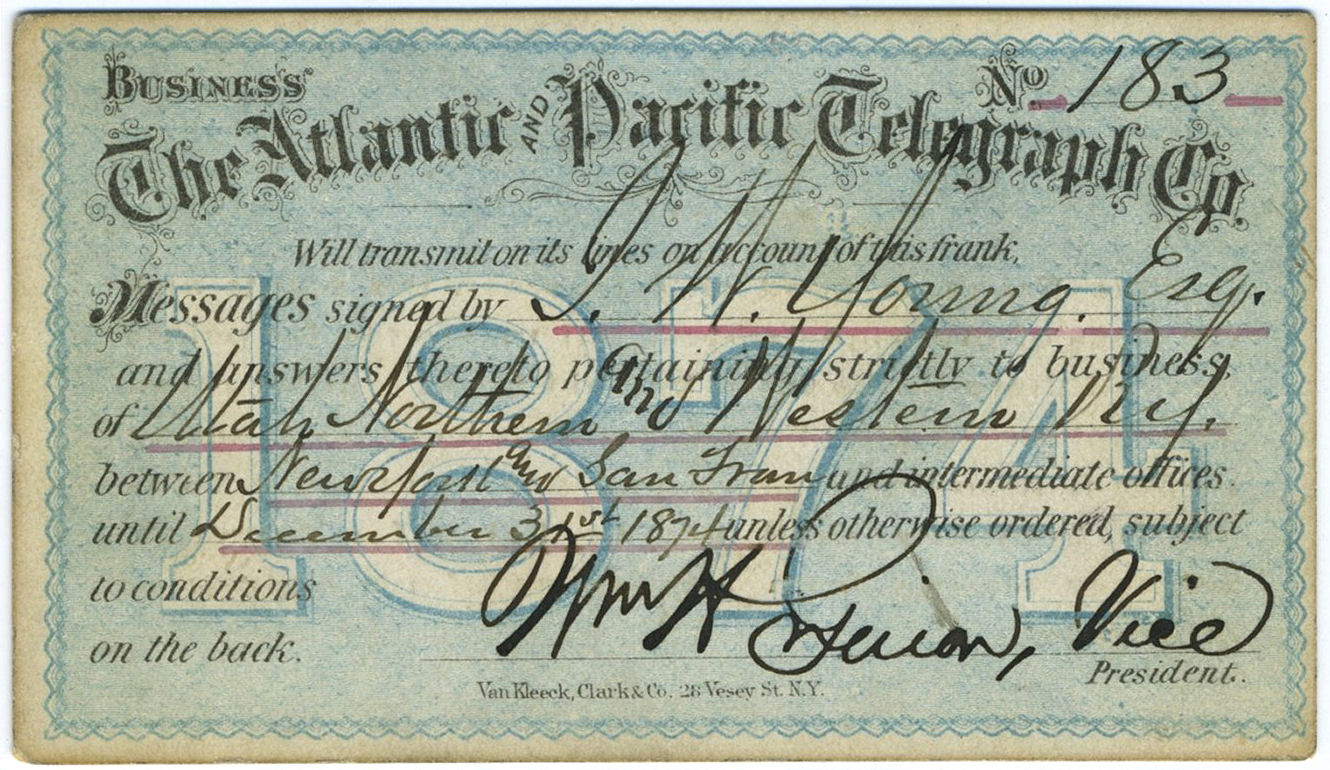 BUSINESS No 183
The Atlantic AND Pacific Telegraph Co.
Will transmit on its lines on account of this frank,
Messages signed by J. W. Young. Esq.
and answers thereto pertaining strictly to business,
of Utah Northern and Western Ry.
between New York and San Fran and intermediate offices
until December 31st 1874 unless otherwise ordered, subject
to conditions
on the back. Wm H Vice
President.
Van Kleeck, Clark & Co. 28 Vesey St. N.Y.
1874